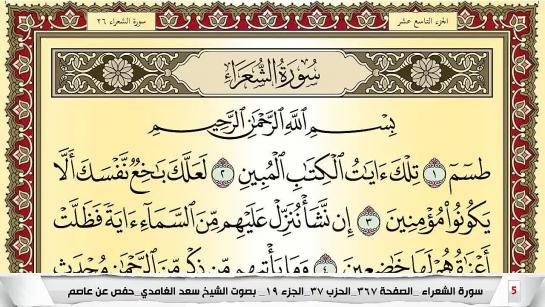 الجزء التاسع عشر
سورة الشعراء ٢٦
سُورَةُ الشُّعَرَاءِ
بِسْمِ اللَّهِ الرَّحْمَٰنِ الرَّحِيمِ
طسٓمٓ ١ تِلْكَ ءَايَٰتُ ٱلْكِتَٰبِ ٱلْمُبِينِ ٢ لَعَلَّكَ بَٰخِعٌ نَّفْسَكَ أَلَّا
يَكُونُوا۟ مُؤْمِنِينَ ٣ إِن نَّشَأْ نُنَزِّلْ عَلَيْهِم مِّنَ ٱلسَّمَآءِ ءَايَةً فَظَلَّتْ
أَعْنَٰقُهُمْ لَهَا خَٰضِعِينَ ٤ وَمَا يَأْتِيهِم مِّن ذِكْرٍ مِّنَ ٱلرَّحْمَٰنِ مُحْدَثٍ
5 سورة الشعراء _الصفحة ٣٦٧_الحزب ٣٧_الجزء ١٩_ بصوت الشيخ سعد الغامدي_حفص عن عاصم